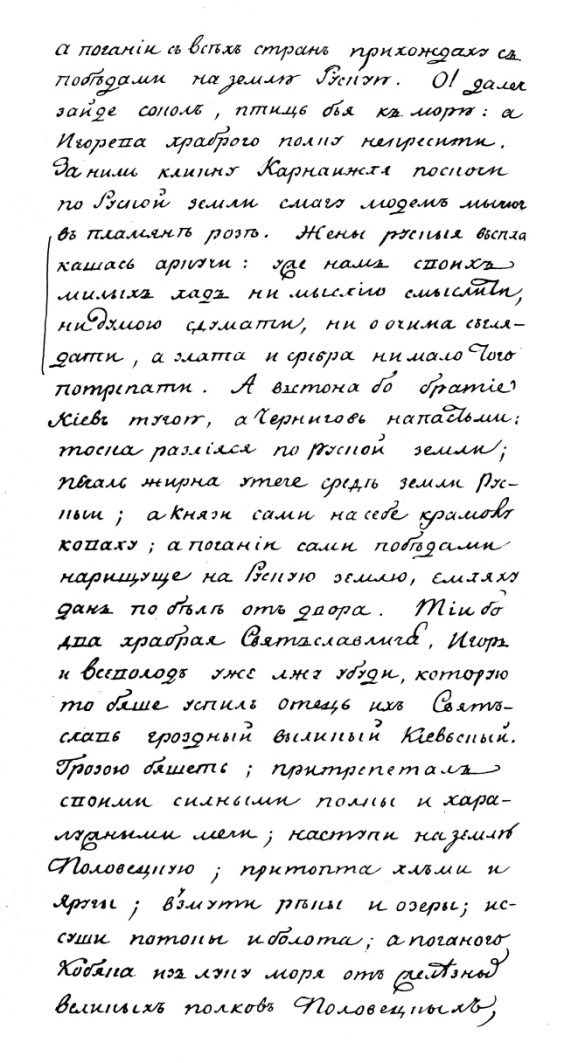 а поганіи съ всѣхъ странъ прихождаху съ
побѣдами на землю Рускую. О! далеч
зайде соколъ, птицъ бья къ морю: а
Игорева храброго полку некресити.
За ними кликну Карнаижля поскочи
по Руской земли смагу людемъ мычюч
въ пламянѣ розѣ. Жены рускыя въспла
кашась аркучи: уже намъ своихъ
милыхъ ладъ ни мыслію смыслити,
ни думою сдумати, ни очима съгля-
дати, а злата и сребра ни мало того
потрепати. А въстона бо братіе
Кіевъ тугою, а Черниговъ напастьми;
тоска разліяся по Руской земли;
печаль жирна утече средь земли Рус-
кыи; а Князи сами на себе крамолу
коваху; а поганіи сами побѣдами
нарищуще на Рускую землю, емляху
дань по бѣлѣ отъ двора. Тіи бо
два храбрая Святъславлича, Игорь
и Всеволодъ уже лжу убуди, которую
то бяше успилъ отецъ ихъ Святъ-
славь грозный великый Кіевьскый.
Грозою бяшеть; притрепеталъ
своими сильными полкы и хара-
лужными мечи; наступи на землю
Половецкую; притопта хлъми и
яругы; взмути рѣкы и озеры; ис-
суши потокы и болота; а поганого
Кобяка изъ луку моря отъ желѣзныхъ
великыхъ полковъ Половецкыхъ,